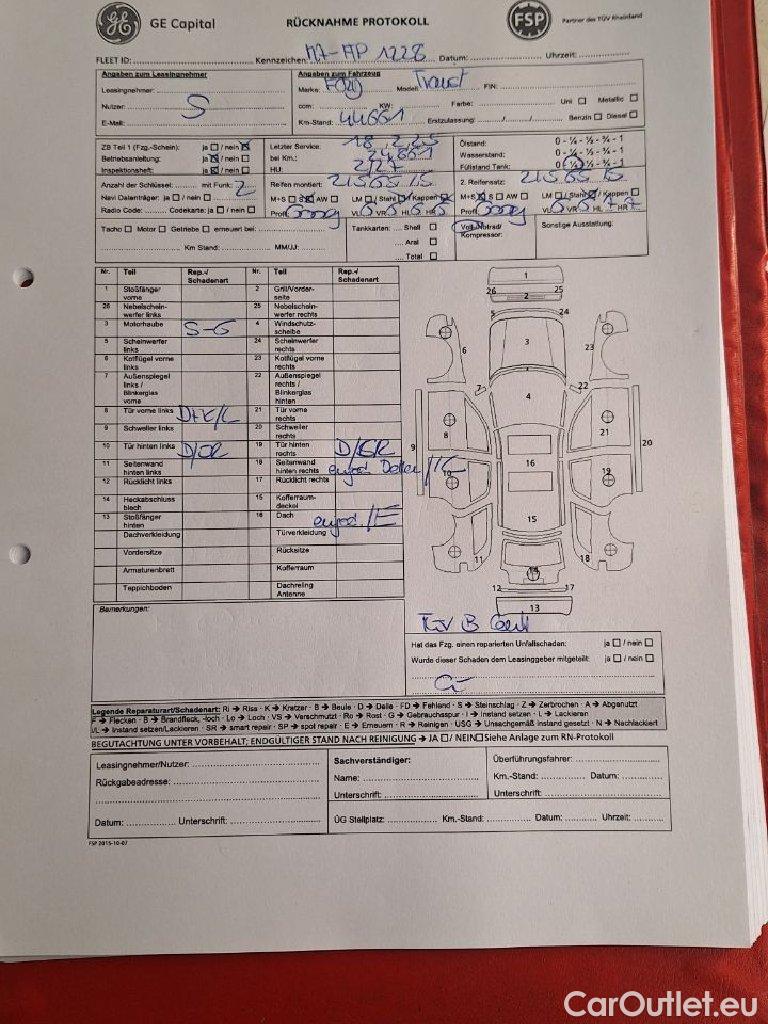 GE Capital
RÜCKNAHME PROTOKOLL
FSP
Partner des TÜV Rheinland
FLEET ID: Kennzeichen: MA-AP 1228 Datum: Uhrzeit:
Angaben zum Leasingnehmer
Leasingnehmer:
Nutzer: S
E-Mail:
Angaben zum Fahrzeug
Marke: Ford Modell: Transit FIN:
ccm: KW: Farbe: Uni Metallic
Km-Stand: 44661 Erstzulassung: Benzin Diesel
ZB Teil 1 (Fzg.-Schein): ja / nein
Betriebsanleitung: ja / nein
Inspektionsheft: ja / nein
Letzter Service: 18.2.25
bei Km.: 24.661
HU: 2/27
Ölstand: 0 - ¼ - ½ - ¾ - 1
Wasserstand: 0 - ¼ - ½ - ¾ - 1
Füllstand Tank: 0 - ¼ - ½ - ¾ - 1
Anzahl der Schlüssel: mit Funk: 2
Navi Datenträger: ja / nein
Radio Code: Codekarte: ja / nein
Reifen montiert: 215 65 15
M+S S AW LM / Stahl / Kappen
Profil VL VR HL HR
2. Reifensatz: 215 65 15
M+S S AW LM / Stahl / Kappen
Profil VL VR HL HR
Tacho Motor Getriebe erneuert bei:
Km Stand: MM/JJ:
Tankkarten: Shell
Aral
Total
Voll-/Notrad/
Kompressor:
Sonstige Ausstattung:
Nr. Teil Rep.-/ Schadenart Nr. Teil Rep.-/ Schadenart
1 Stoßfänger vorne 2 Grill/Vorderseite
26 Nebelscheinwerfer links 25 Nebelscheinwerfer rechts
3 Motorhaube S-G 4 Windschutzscheibe
5 Scheinwerfer links 24 Scheinwerfer rechts
6 Kotflügel vorne links 23 Kotflügel vorne rechts
7 Außenspiegel links / Blinkerglas vorne 22 Außenspiegel rechts / Blinkerglas hinten
8 Tür vorne links D+K/L 21 Tür vorne rechts
9 Schweller links 20 Schweller rechts
10 Tür hinten links 19 Tür hinten rechts
11 Seitenwand hinten links 18 Seitenwand hinten rechts
12 Rücklicht links 17 Rücklicht rechts
14 Heckabschlussblech 15 Kofferraumdeckel
13 Stoßfänger hinten 16 Dach
Dachverkleidung Türverkleidung
Vordersitze Rücksitze
Armaturenbrett Kofferraum
Teppichboden Dachreling Antenne
1
26 25
2
5 24
3
6
23
7
22
4
8
21
9
20
10
16
19
15
11
18
14
12 17
13
Bemerkungen:
Hat das Fzg. einen reparierten Unfallschaden: ja / nein
Wurde dieser Schaden dem Leasinggeber mitgeteilt: ja / nein
Legende Reparaturart/Schadenart: Ri → Riss · K → Kratzer · B → Beule · D → Delle · FD → Fehlend · S → Steinschlag · Z → Zerbrochen · A → Abgenutzt
F → Flecken · B → Brandfleck, -loch · Lo → Loch · VS → Verschmutzt · Ro → Rost · G → Gebrauchsspur · I → Instand setzen · L → Lackieren
I/L → Instand setzen/Lackieren · SR → smart repair · SP → spot repair · E → Erneuern · R → Reinigen · USG → Unsachgemäß instand gesetzt · N → Nachlackiert
BEGUTACHTUNG UNTER VORBEHALT; ENDGÜLTIGER STAND NACH REINIGUNG → JA / NEIN Siehe Anlage zum RN-Protokoll
Leasingnehmer/Nutzer:
Rückgabeadresse:
Datum: Unterschrift:
Sachverständiger:
Name:
Unterschrift:
Überführungsfahrer:
Km.-Stand: Datum:
Unterschrift:
ÜG Stellplatz: Km.-Stand: Datum: Uhrzeit:
FSP 2015-10-07
CarOutlet.eu